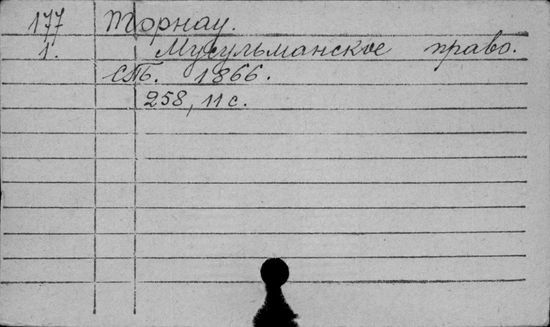 177 Торнау.
1. Мусульманское право.
СПб. 1866.
258, 11 с.